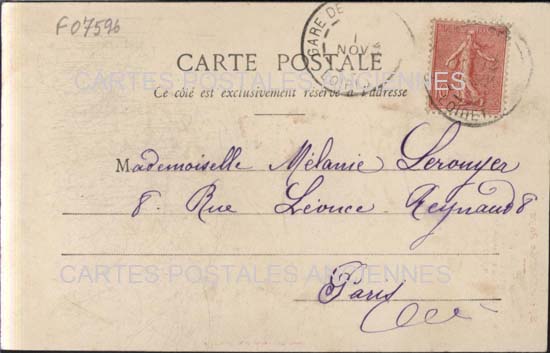 F07596
GARE DE
1
NOV
LOIRET
CARTE POSTALE
Ce côté est exclusivement réservé à l'adresse
CARTES POSTALES ANCIENNES
Mademoiselle Mélanie Lerouyer
8. Rue Léonce Reynaud 8
CARTES POSTALES ANCIENNES
Paris